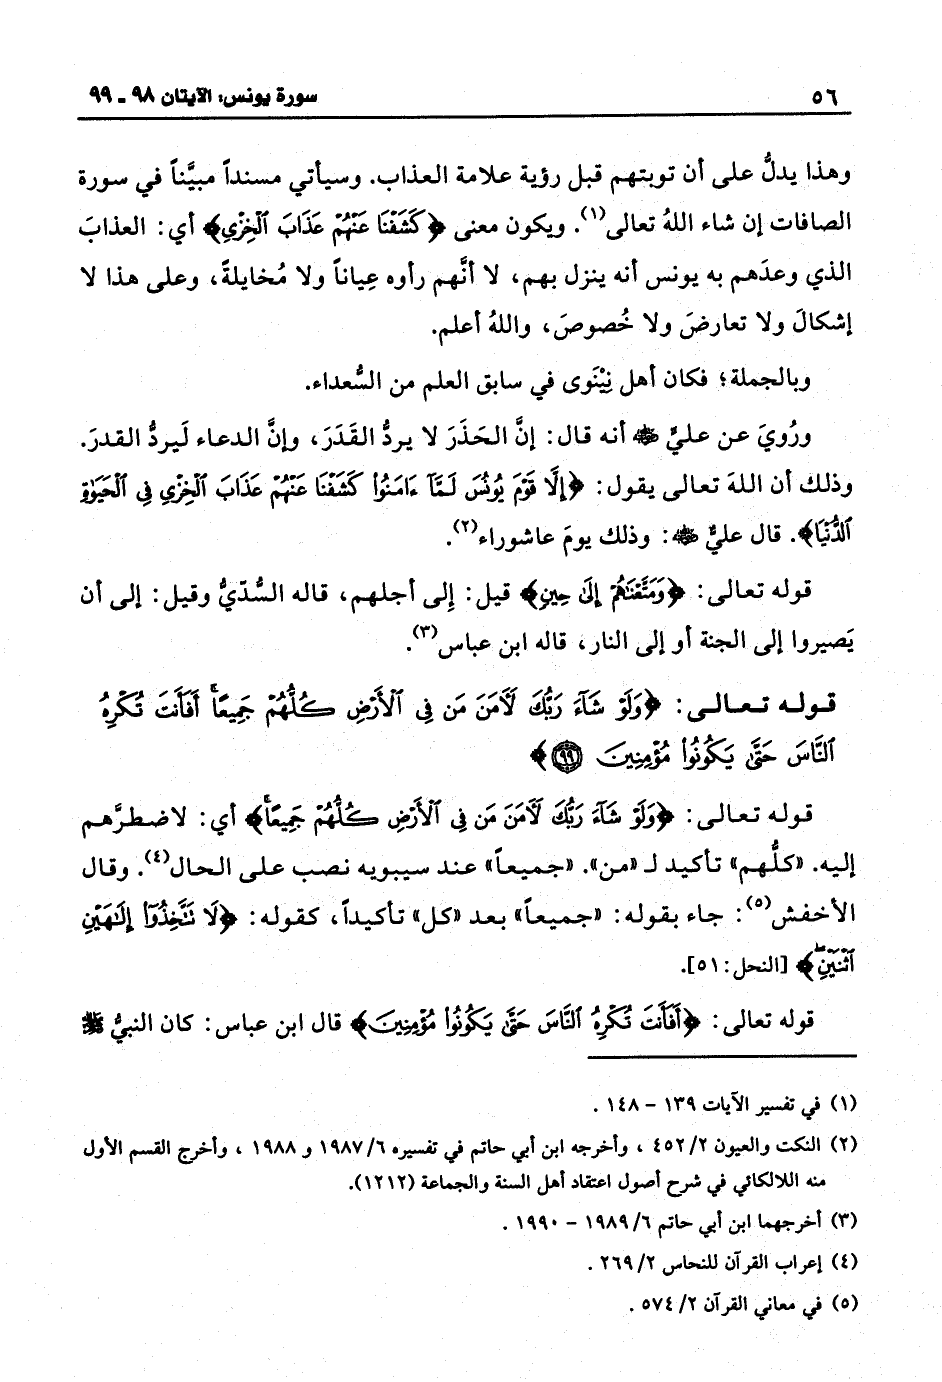 ٥٦
سورة يونس: الآيتان ٩٨ - ٩٩
وهذا يدلُّ على أن توبتهم قبل رؤية علامة العذاب. وسيأتي مسنداً مبيَّناً في سورة
الصافات إن شاء اللهُ تعالى(١). ويكون معنى ﴿كَشَفْنَا عَنْهُمْ عَذَابَ ٱلْخِزْيِ﴾ أي: العذابَ
الذي وعدَهم به يونس أنه ينزل بهم، لا أنَّهم رأوه عِياناً ولا مُخايلةً، وعلى هذا لا
إشكالَ ولا تعارضَ ولا خُصوصَ، واللهُ أعلم.
وبالجملة؛ فكان أهل نِيْنَوى في سابق العلم من السُّعداء.
ورُويَ عن عليٍّ ﷺ أنه قال: إنَّ الحَذَرَ لا يردُّ القَدَرَ، وإنَّ الدعاء لَيردُّ القدرَ.
وذلك أن اللهَ تعالى يقول: ﴿إِلَّا قَوْمَ يُونُسَ لَمَّآ ءَامَنُوا۟ كَشَفْنَا عَنْهُمْ عَذَابَ ٱلْخِزْىِ فِى ٱلْحَيَوٰةِ
ٱلدُّنْيَا﴾. قال عليٌّ ﷺ: وذلك يومَ عاشوراء(٢).
قوله تعالى: ﴿وَمَتَّعْنَاهُمْ إِلَىٰ حِينٍ﴾ قيل: إلى أجلهم، قاله السُّدّيُّ وقيل: إلى أن
يَصيروا إلى الجنة أو إلى النار، قاله ابن عباس(٣).
قوله تعالى: ﴿وَلَوْ شَآءَ رَبُّكَ لَآمَنَ مَن فِى ٱلْأَرْضِ كُلُّهُمْ جَمِيعًا ۚ أَفَأَنتَ تُكْرِهُ
ٱلنَّاسَ حَتَّىٰ يَكُونُوا۟ مُؤْمِنِينَ ٩٩﴾
قوله تعالى: ﴿وَلَوْ شَآءَ رَبُّكَ لَآمَنَ مَن فِى ٱلْأَرْضِ كُلُّهُمْ جَمِيعًا ۚ﴾ أي: لاضطرَّهم
إليه. «كلُّهم» تأكيد لـ «من». «جميعاً» عند سيبويه نصب على الحال(٤). وقال
الأخفش(٥): جاء بقوله: «جميعاً» بعد «كل» تأكيداً، كقوله: ﴿لَا تَتَّخِذُوٓا۟ إِلَـٰهَيْنِ
ٱثْنَيْنِ ۖ﴾ [النحل: ٥١].
قوله تعالى: ﴿أَفَأَنتَ تُكْرِهُ ٱلنَّاسَ حَتَّىٰ يَكُونُوا۟ مُؤْمِنِينَ﴾ قال ابن عباس: كان النبيُّ ﷺ
(١) في تفسير الآيات ١٣٩ - ١٤٨ .
(٢) النكت والعيون ٤٥٢/٢ ، وأخرجه ابن أبي حاتم في تفسيره ١٩٨٧/٦ و ١٩٨٨ ، وأخرج القسم الأول
منه اللالكائي في شرح أصول اعتقاد أهل السنة والجماعة (١٢١٢).
(٣) أخرجهما ابن أبي حاتم ١٩٨٩/٦ - ١٩٩٠ .
(٤) إعراب القرآن للنحاس ٢٦٩/٢ .
(٥) في معاني القرآن ٥٧٤/٢ .